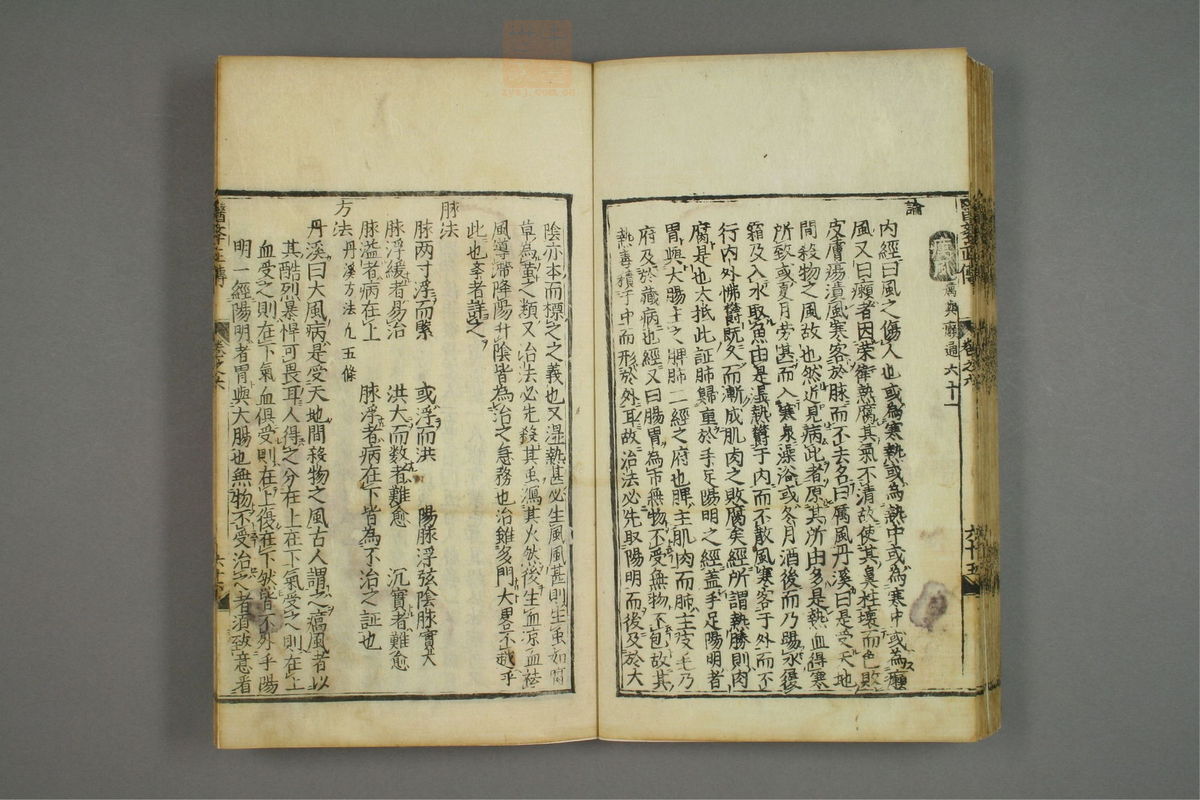 論
癘風 癘與癩通 六十一
內經曰風之傷人也或為寒熱或為熱中或為寒中或為癘
風又曰癩者因榮衛熱腐其氣不清故使其鼻柱壞而色敗
皮膚瘍潰風寒客於脉而不去名曰厲風丹溪曰是受天地
間殺物之風故也然近見病此者原其所由多是熱血得寒
所致或夏月勞甚而入寒泉澡浴或冬月酒後而乃踢氷履
霜及入水取魚由是濕熱欝于內而不散風寒客于外而不
行內外怫欝既久而漸成肌肉之敗腐矣經所謂熱勝則肉
腐是也大抵此証肺歸重於手足陽明之經盖手足陽明者
胃與大腸主之脾肺二經之府也脾主肌肉而肺主皮毛乃
府及於藏病也經又曰腸胃為市無物不受無物不包故其
熱毒積于中而形於外耳故治法必先取陽明而後及於大
陰亦本而標之之義也又濕熱甚必生風風甚則生虫如腐
草為螢之類又治法必先殺其虫瀉其火然後生血凉血袪
風導滯降陽升陰皆為治之急務也治雖多門大畧不越乎
此也孝者詳之
脉法
脉兩寸浮而緊 或浮而洪 陽脉浮弦陰脉實大
脉浮緩者易治 洪大而数者難愈 沉實者難愈
脉溢者病在上 脉浮者病在下皆為不治之証也
方法 丹溪方法凡五條
丹溪曰大風病是受天地間殺物之風古人謂之癘風者以
其酷烈暴悍可畏耳人得之分在上在下氣受之則在上
血受之則在下氣血俱受則在上復在下然皆不外手陽
明一經陽明者胃與大腸也無物不受治之者須致意看
醫孝正傳
卷之六
六十五